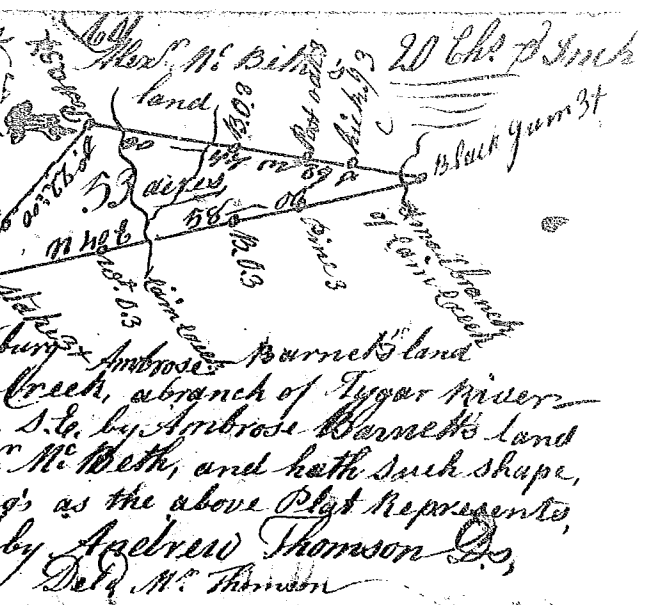 Alexr. Mc Beth's
land
20 Chs. p Inch
Black Gum 3+
B.O. 3
Post oak 3
hick'y 3
53 acres
58
N 40 E
B.O. 3
Pine 3
Small branch
of Cain Creek
Cain Creek
Stake 3+
Ambrose Barnett's land
Creek, a branch of Tygar River
S.E. by Ambrose Barnett's land
Mc Beth, and hath such shape,
as the above Plat Represents,
by Andrew Thomson D.S,
Deld Mr Thomson